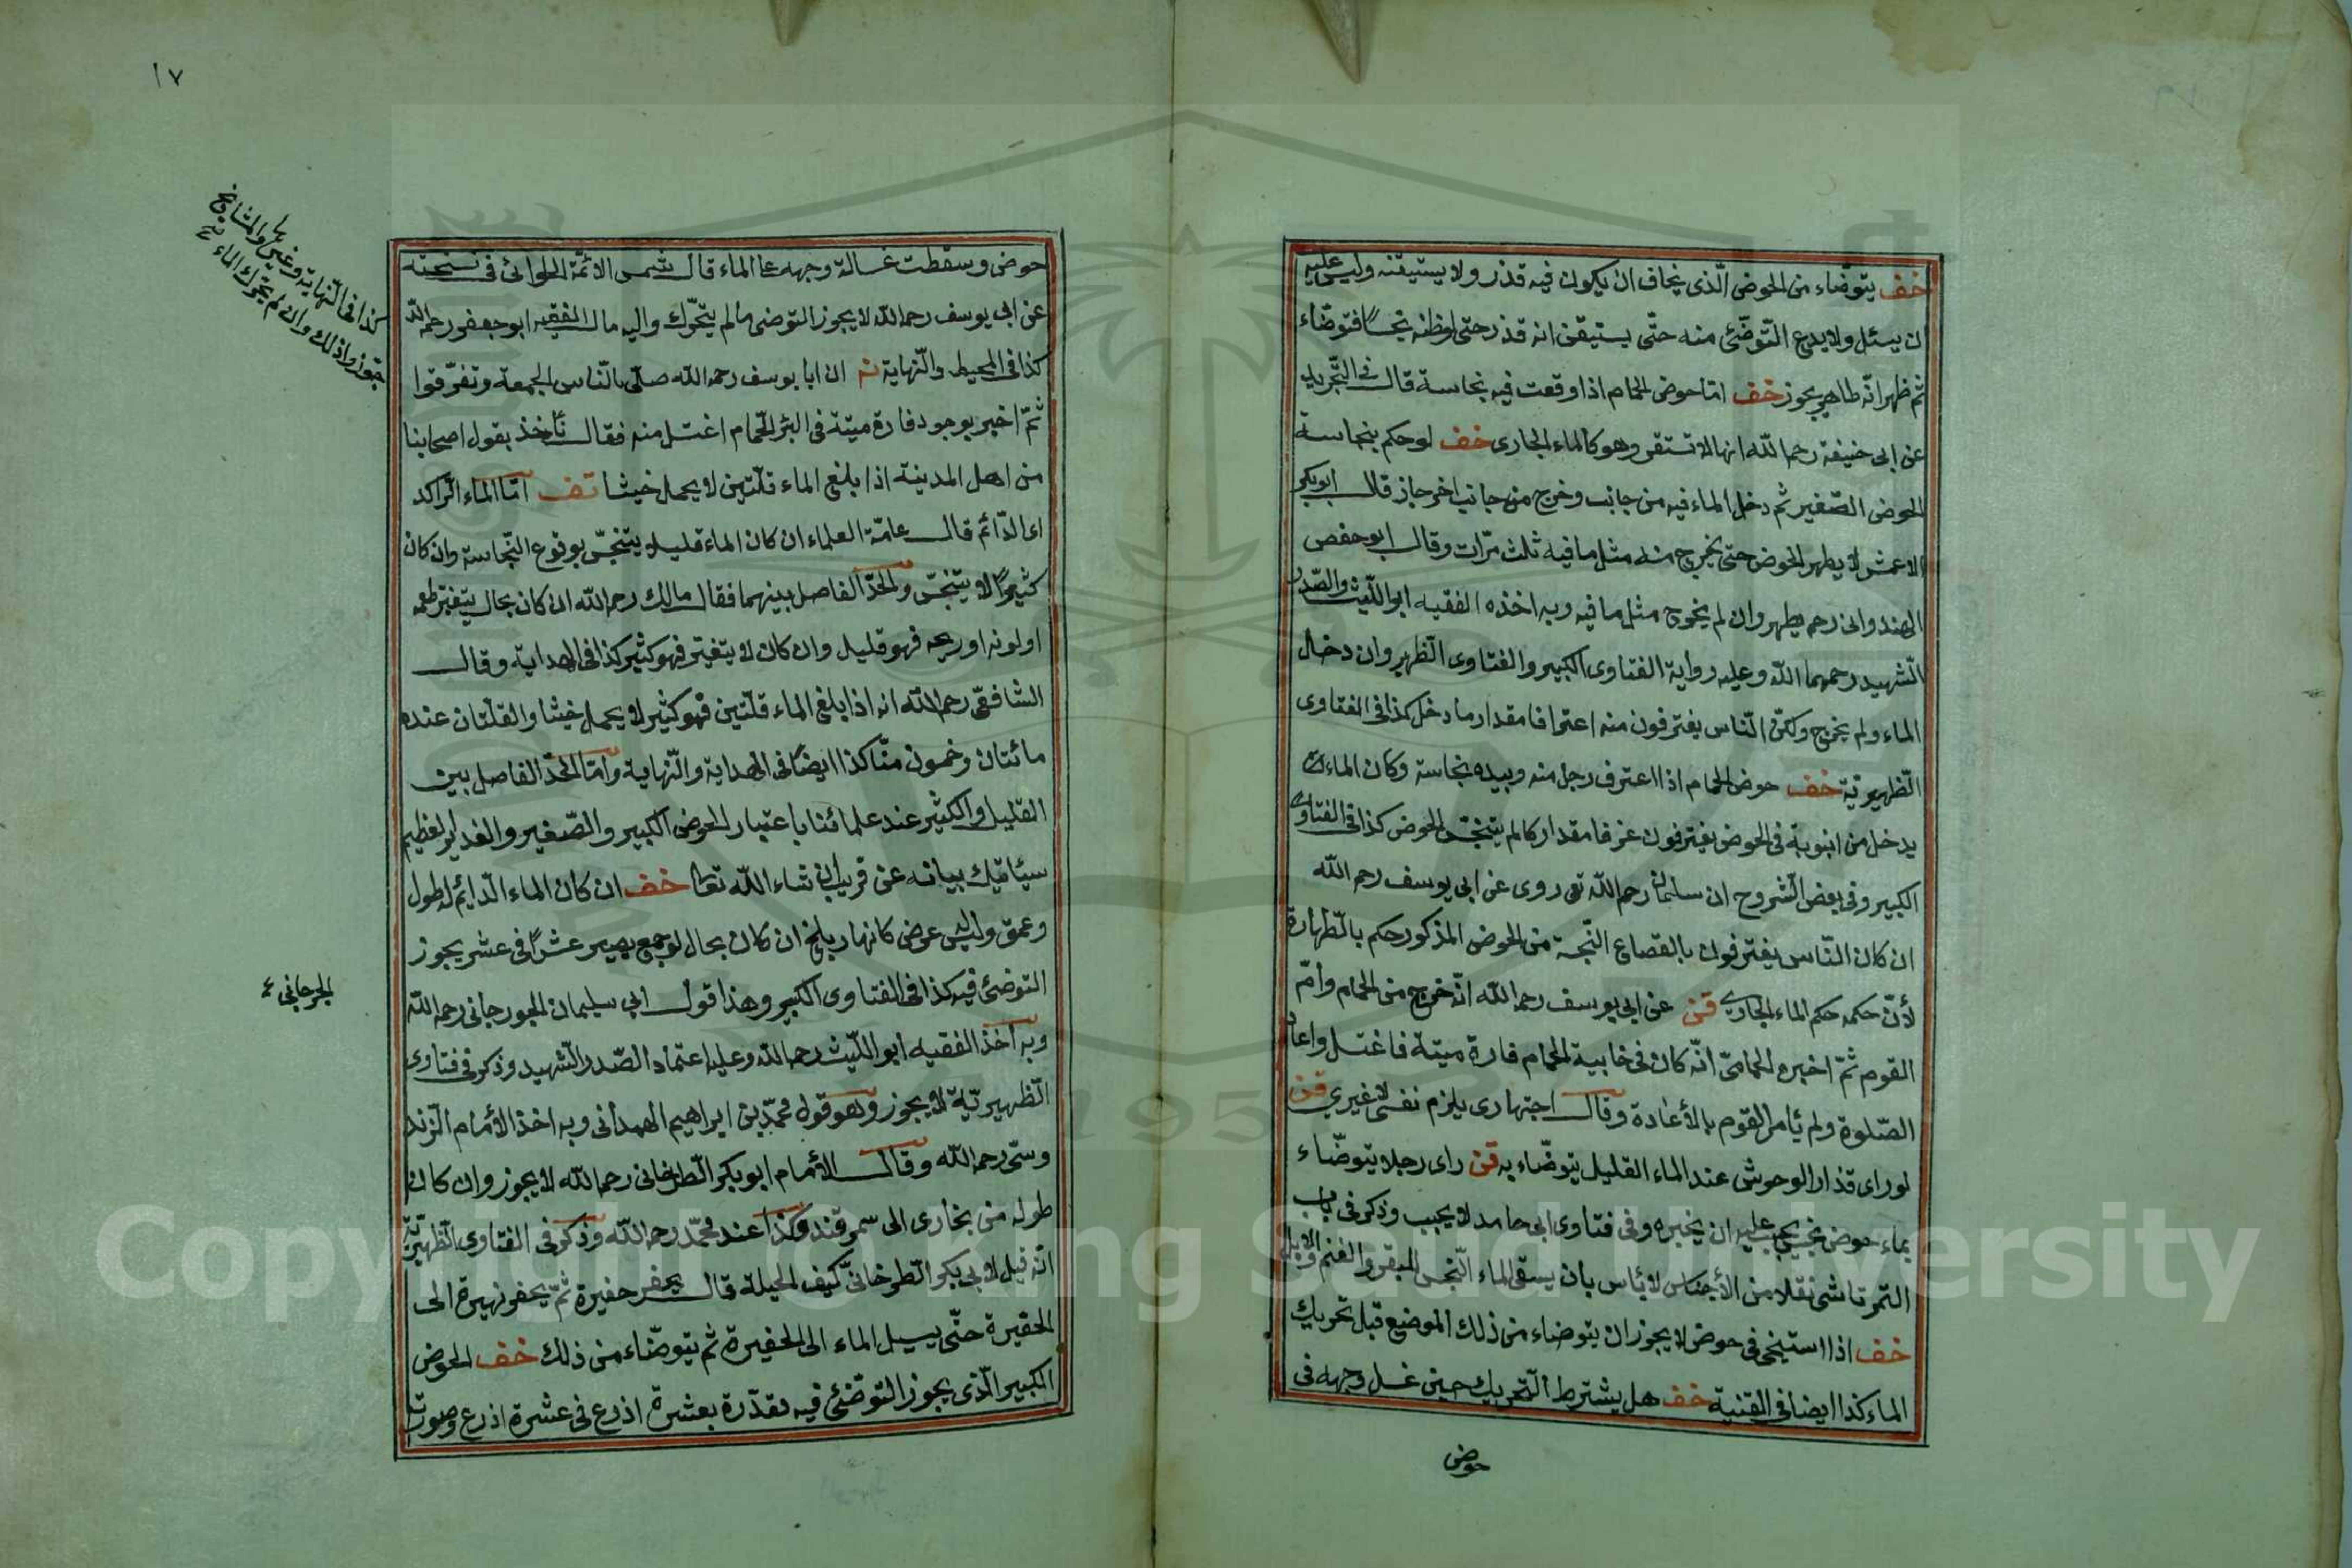 خف يتوضاء من الحوض الذى يخاف ان يكون فيه قذر ولا يستيقنه وليس عليه
ان يسئل ولا يدع التوضئ منه حتى يستيقن انه قذر حتى لو ظنه نجسا فتوضاء
ثم ظهر انه طاهر يجوز خف اما حوض الحمام اذا وقعت فيه نجاسة قال فى التجريد
عن ابى حنيفة رحمه الله انها لا تستقر وهو كالماء الجارى خف لو حكم بنجاسة
الحوض الصغير ثم دخل الماء فيه من جانب وخرج من جانب اخر جاز قال ابو بكر
الاعمش لا يطهر الحوض حتى يخرج منه مثل ما فيه ثلث مرات وقال ابو حفص
الهندوانى رحمه يطهر وان لم يخرج مثل ما فيه وبه اخذه الفقيه ابو الليث والصدر
الشهيد رحمهما الله وعليه رواية الفتاوى الكبير والفتاوى الظهير وان دخل
الماء ولم يخرج ولكن الناس يغترفون منه اعترافا مقدار ما دخل كذا فى الفتاوى
الظهيرية خف حوض الحمام اذا اعترف رجل منه وبيده نجاسة وكان الماء
يدخل من انبوبة فى الحوض يغترفون غرفا مقداركا لم يتنجس الحوض كذا فى الفتاوى
الكبير وفى بعض الشروح ان سلمان رحمه الله تعى روى عن ابى يوسف رحمه الله
ان كان الناس يغترفون بالقصاع النجسة من الحوض المذكور حكم بالطهارة
لأن حكمه حكم الماء الجارى قن عن ابى يوسف رحمه الله انه خرج من الحمام وأم
القوم ثم اخبره الحمامى انه كان فى خابية الحمام فارة ميتة فاغتسل واعاد
الصلوة ولم يأمر القوم بالأعادة وقال اجتهادى يلزم نفسى لا غيري قن
لو راى قذار الوحوش عند الماء القليل يتوضاء به قن راى رجلا يتوضاء
بماء حوض نجس يجب عليه ان يخبره وفى فتاوى ابى حامد لا يجيب وذكر فى باب
التمرتاشى نقلا من الأجناس لا بأس بان يسقى الماء النجس البقر والغنم والابل
خف اذا استنجى فى حوض لا يجوز ان يتوضاء من ذلك الموضع قبل تحريك
الماء كذا ايضا فى القنية خف هل يشترط التحريك حين غسل وجهه فى
حوض
١٧
حوض وسقطت غسالة وجهه عا الماء قال شمس الائمة الحلوانى فى نسخته
عن ابى يوسف رحمه الله لا يجوز التوضى مالم يتحرك واليه مال الفقيه ابو جعفر رحمه الله
كذا فى المحيط والنهاية نه ان ابا يوسف رحمه الله صلى بالناس الجمعة وتفرقوا
ثم اخبر بوجود فارة ميتة فى البئر الحمام اغتسل منه فقال نأخذ بقول اصحابنا
من اهل المدينة اذا بلغ الماء قلتين لا يحمل خبثا تف اما الماء الراكد
اى الدائم قال عامة العلماء ان كان الماء قليلا يتنجس بوقوع النجاسة وان كان
كثيرا لا يتنجس والحد الفاصل بينهما فقال مالك رحمه الله ان كان بحال يتغير طعمه
او لونه او ريحه فهو قليل وان كان لا يتغير فهو كثير كذا فى الهداية وقال
الشافعى رحمه الله انه اذا بلغ الماء قلتين فهو كثير لا يحمل خبثا والقلتان عنده
مائتان وخمسون منا كذا ايضا فى الهداية والنهاية واما الحد الفاصل بين
القليل والكثير عند علمائنا باعتبار الحوض الكبير والصغير والغدير العظيم
سيأتيك بيانه عن قريب ان شاء الله تعا خف ان كان الماء الدايم له طول
وعمق وليس عرض كانهار بلخ ان كان بحال لو جمع يصير عشرا فى عشر يجوز
التوضئ فيه كذا فى الفتاوى الكبير وهذا قول ابى سليمان الجورجانى رحمه الله
وبه اخذ الفقيه ابو الليث رحمه الله وعليه اعتماد الصدر الشهيد وذكر فى فتاوى
الظهيرية لا يجوز وهو قول محمد بن ابراهيم الهمدانى وبه اخذ الأمام الزند
وستى رحمه الله وقال الأمام ابو بكر الطرخانى رحمه الله لا يجوز وان كان
طوله من بخارى الى سمرقند وكذا عند محمد رحمه الله وذكر فى الفتاوى الظهيرية
انه قيل لابى بكر الطرخانى كيف الحيلة قال يحفر حفيرة ثم يحفر نهيرة الى
الحفيرة حتى يسيل الماء الى الحفيرة ثم يتوضاء من ذلك خف الحوض
الكبير الذى يجوز التوضئ فيه مقدرة بعشرة اذرع فى عشرة اذرع وصورت
كذا فى النهاية وغيرها والمشايخ
جوزوا ذلك وان لم يتحرك الماء
الجرجانى
Copyright © King Saud University
195